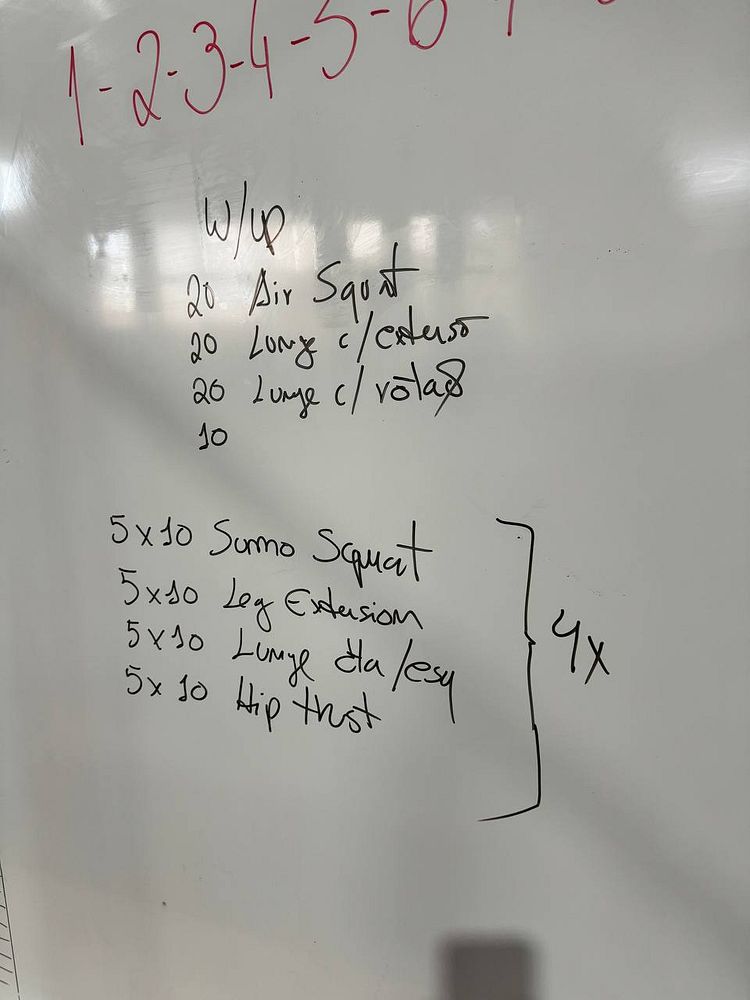 1-2-3-4-5-6
W/up
20 Air Squat
20 Lunge c/extensõ
20 Lunge c/rotação
10
5x10 Sumo Squat
5x10 Leg Extension
5x10 Lunge dta/esq
5x10 Hip trust
4x